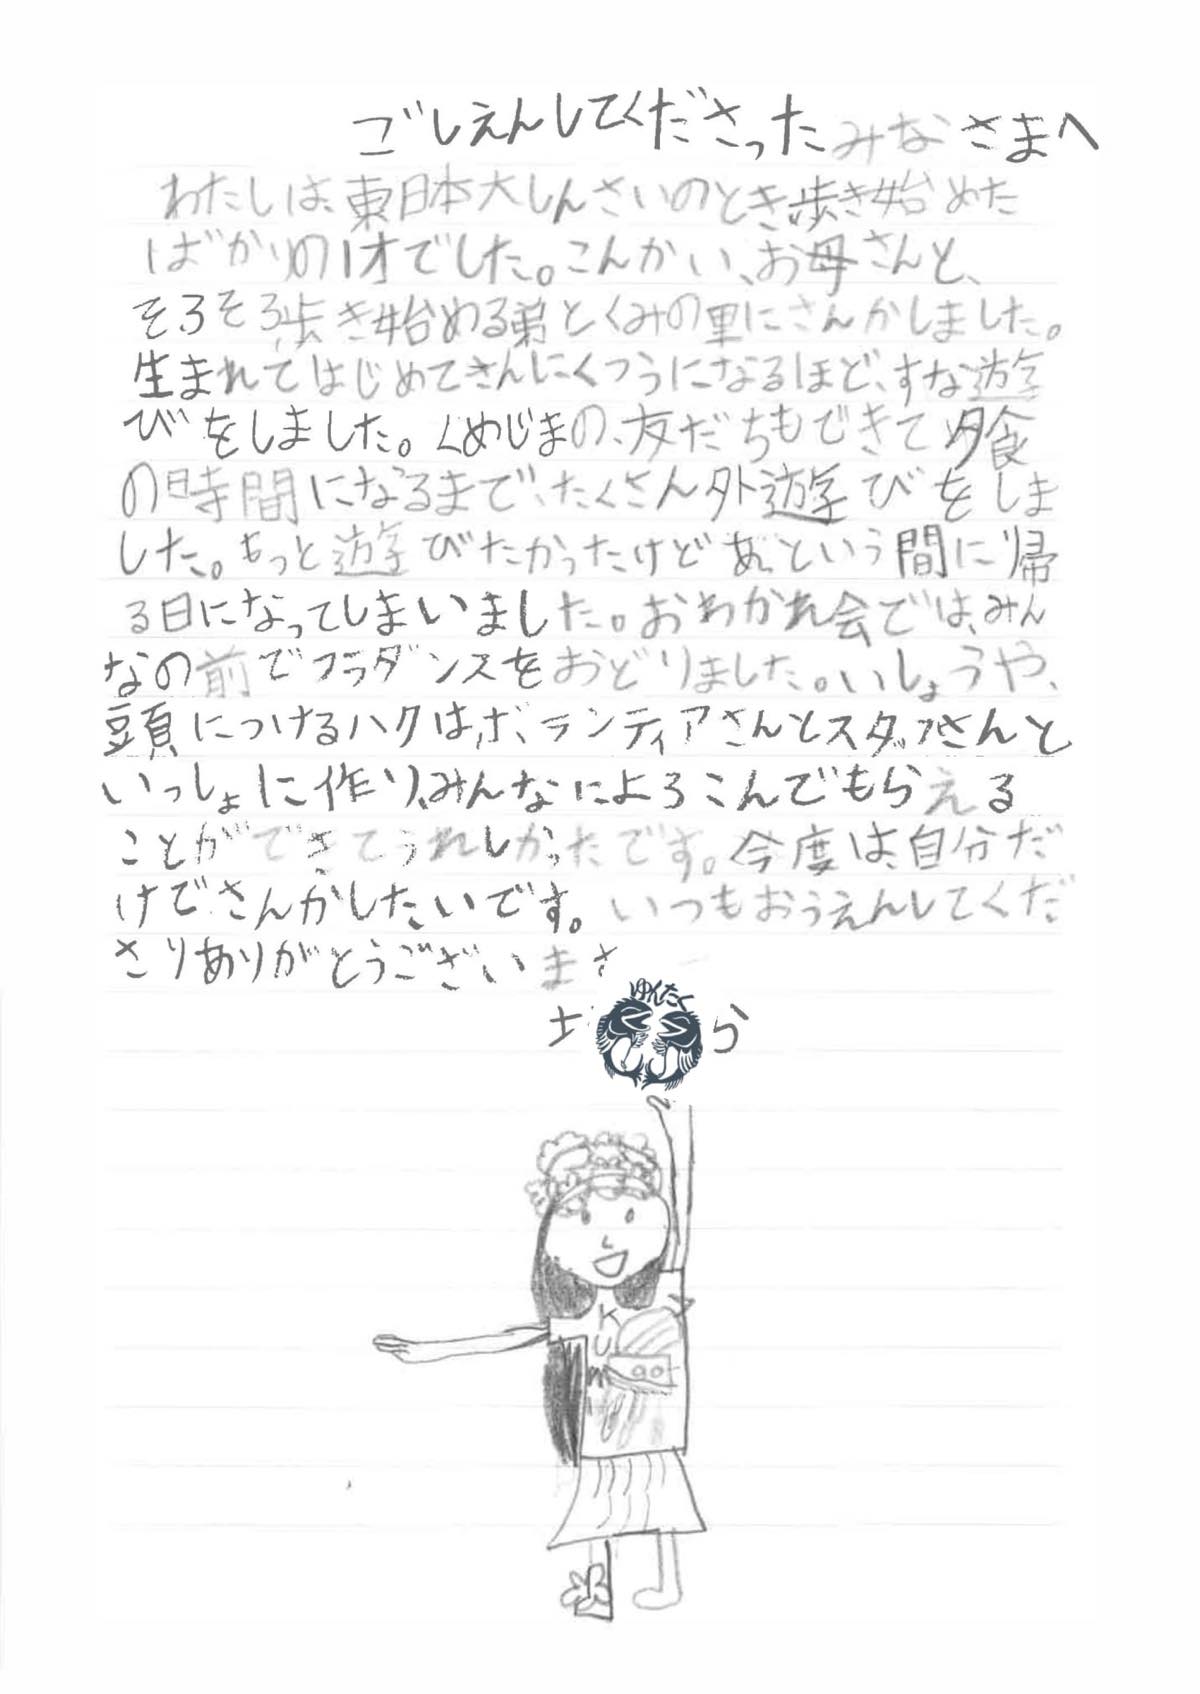 ごしえんしてくださったみなさまへ
わたしは、東日本大しんさいのとき歩き始めた
ばかりの1才でした。こんかい、お母さんと、
そろそろ歩き始める弟とくみの里にさんかしました。
生まれてはじめてきんにくつうになるほど、すな遊
びをしました。くめじまの、友だちもできて夕食
の時間になるまで、たくさん外遊びをしま
した。もっと遊びたかったけどあっという間に帰
る日になってしまいました。おわかれ会では、みん
なの前でフラダンスをおどりました。いしょうや、
頭につけるハクは、ボランティアさんとスタッフさんと
いっしょに作り、みんなによろこんでもらえる
ことができてうれしかったです。今度は、自分だ
けでさんかしたいです。いつもおうえんしてくだ
さりありがとうございま
ゆんたく
ら
KUM